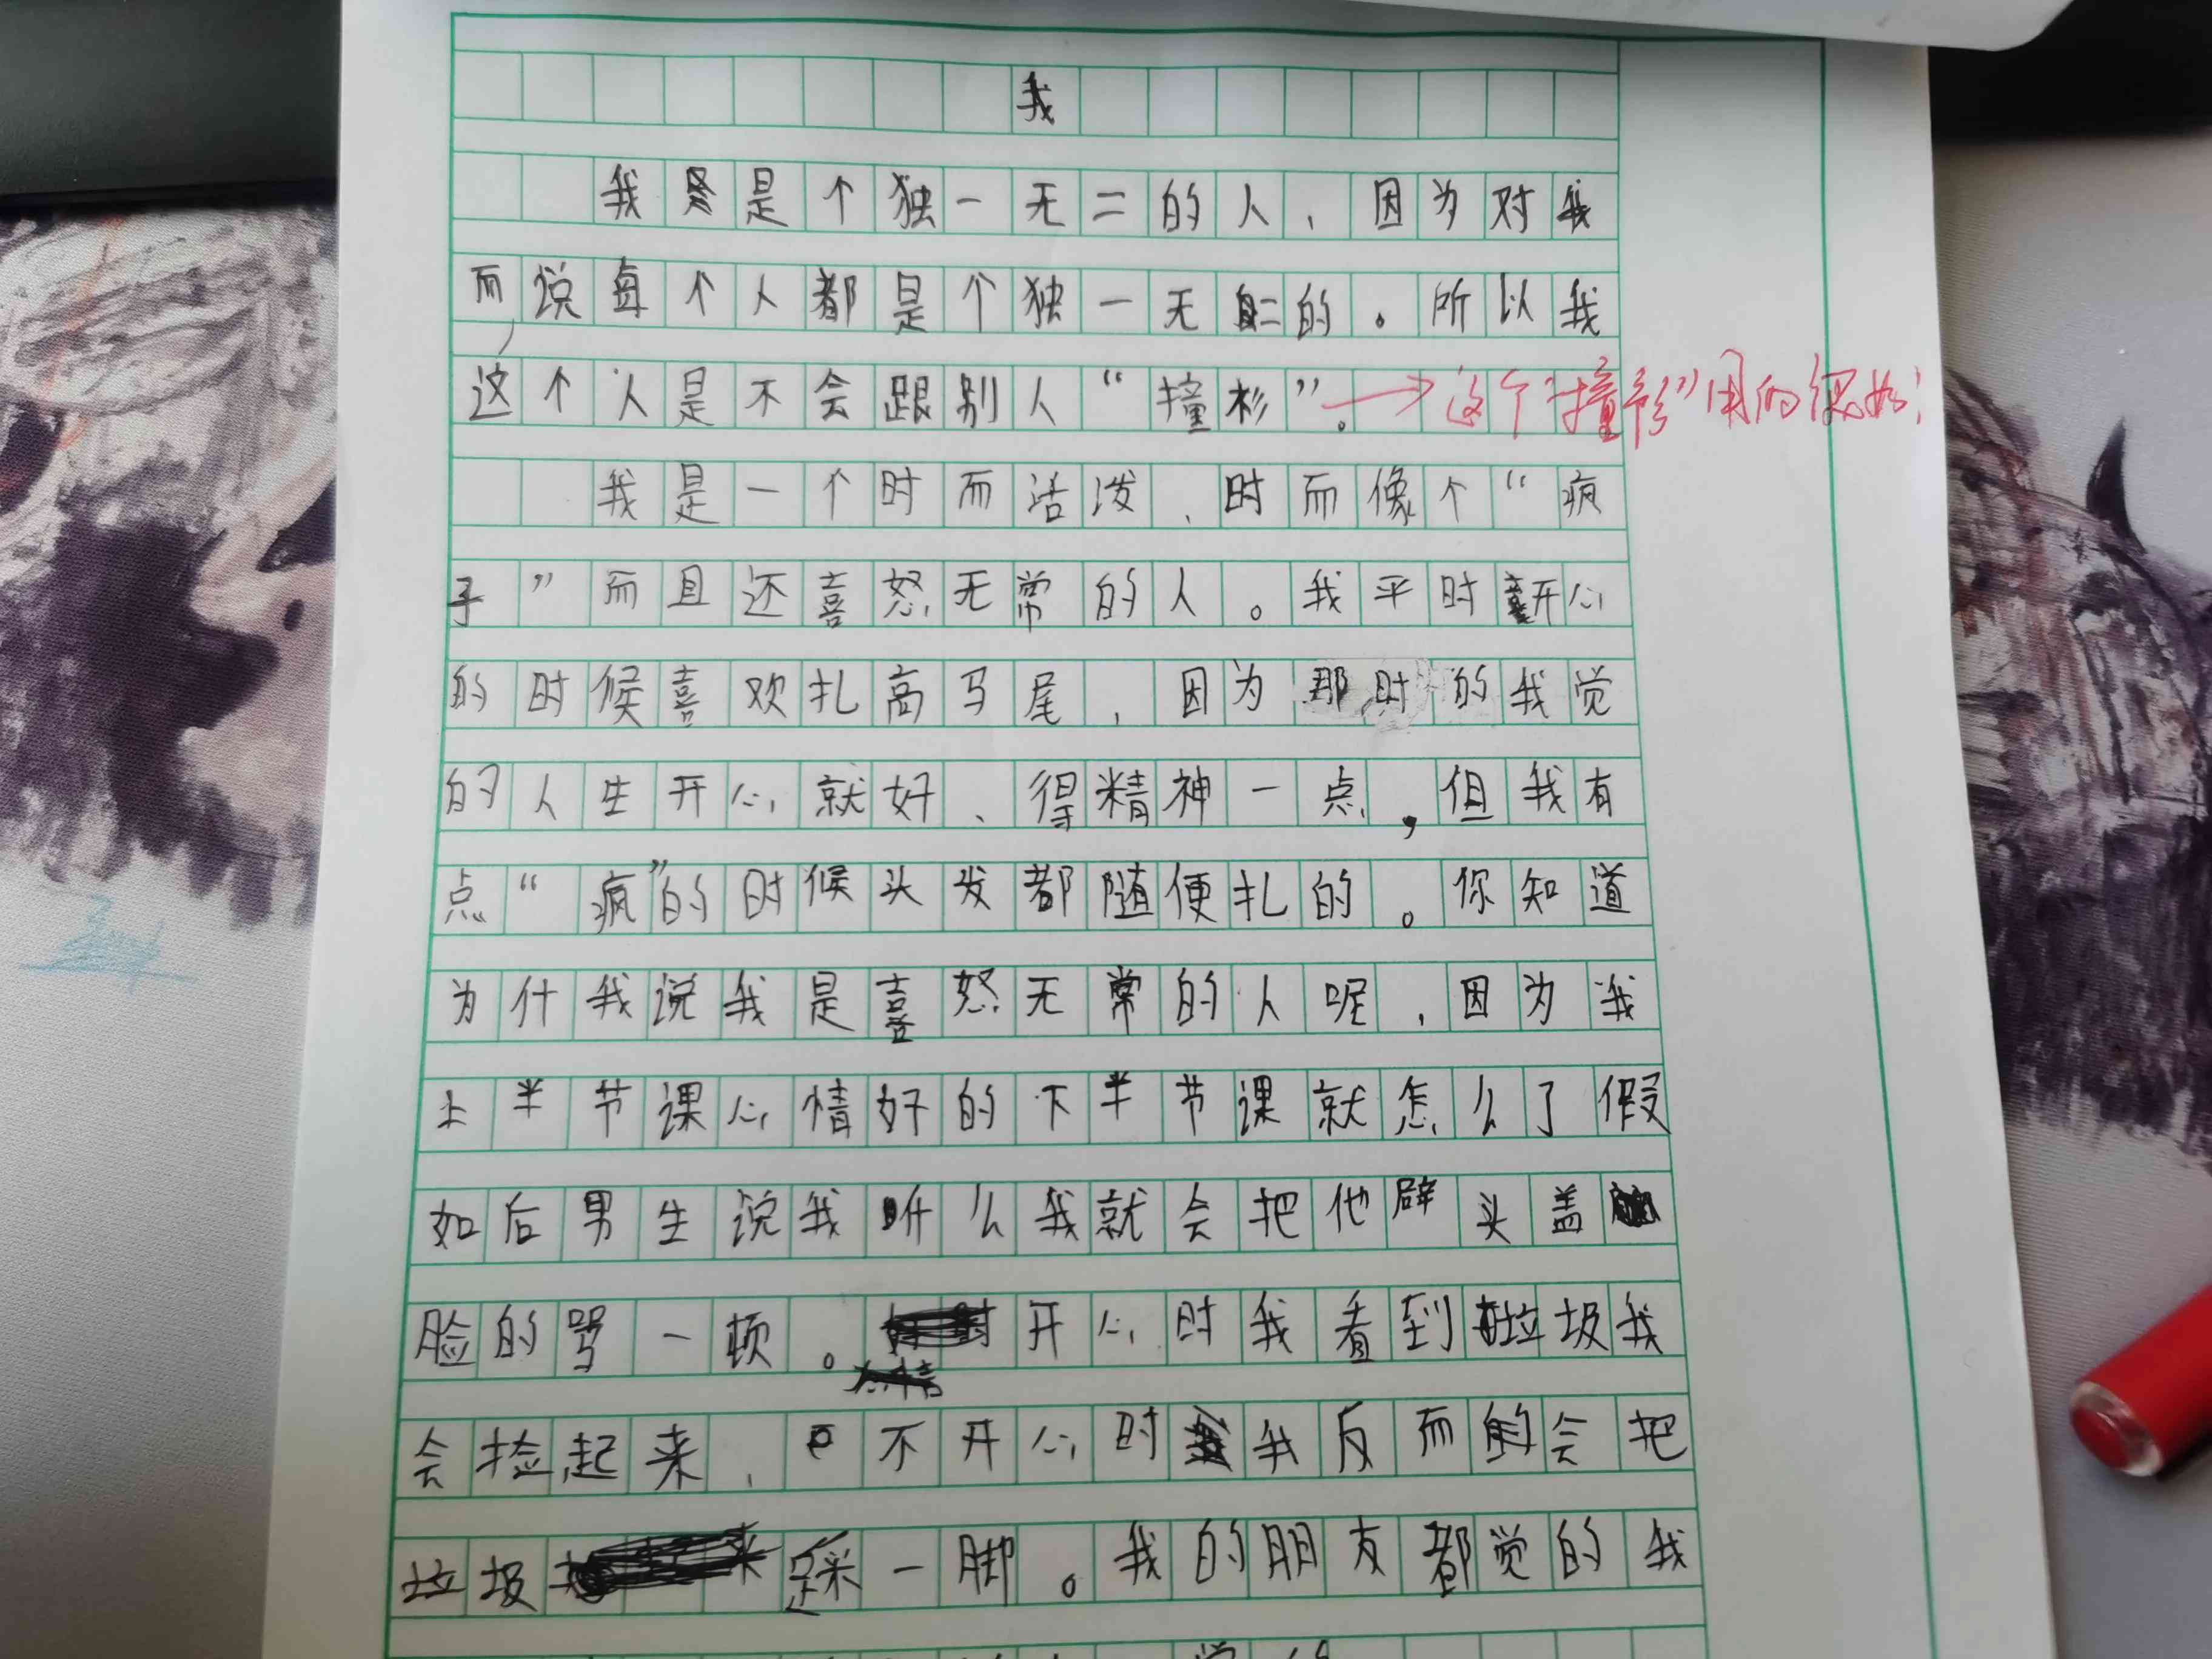 我
我是个独一无二的人，因为对我
而说，每个人都是个独一无二的。所以我
这个人是不会跟别人“撞衫”。→这个“撞衫”用的很好！
我是一个时而活泼、时而像个“疯
子”而且还喜怒无常的人。我平时开心
的时候喜欢扎高马尾，因为那时的我觉
的人生开心就好、得精神一点，但我有
点“疯”的时候头发都随便扎的。你知道
为什我说我是喜怒无常的人呢，因为我
上半节课心情好的下半节课就怎么了假
如后男生说我什么我就会把他辟头盖
脸的骂一顿。开心时我看到垃圾我
会捡起来，不开心时我反而会把
垃圾踩一脚。我的朋友都觉的我